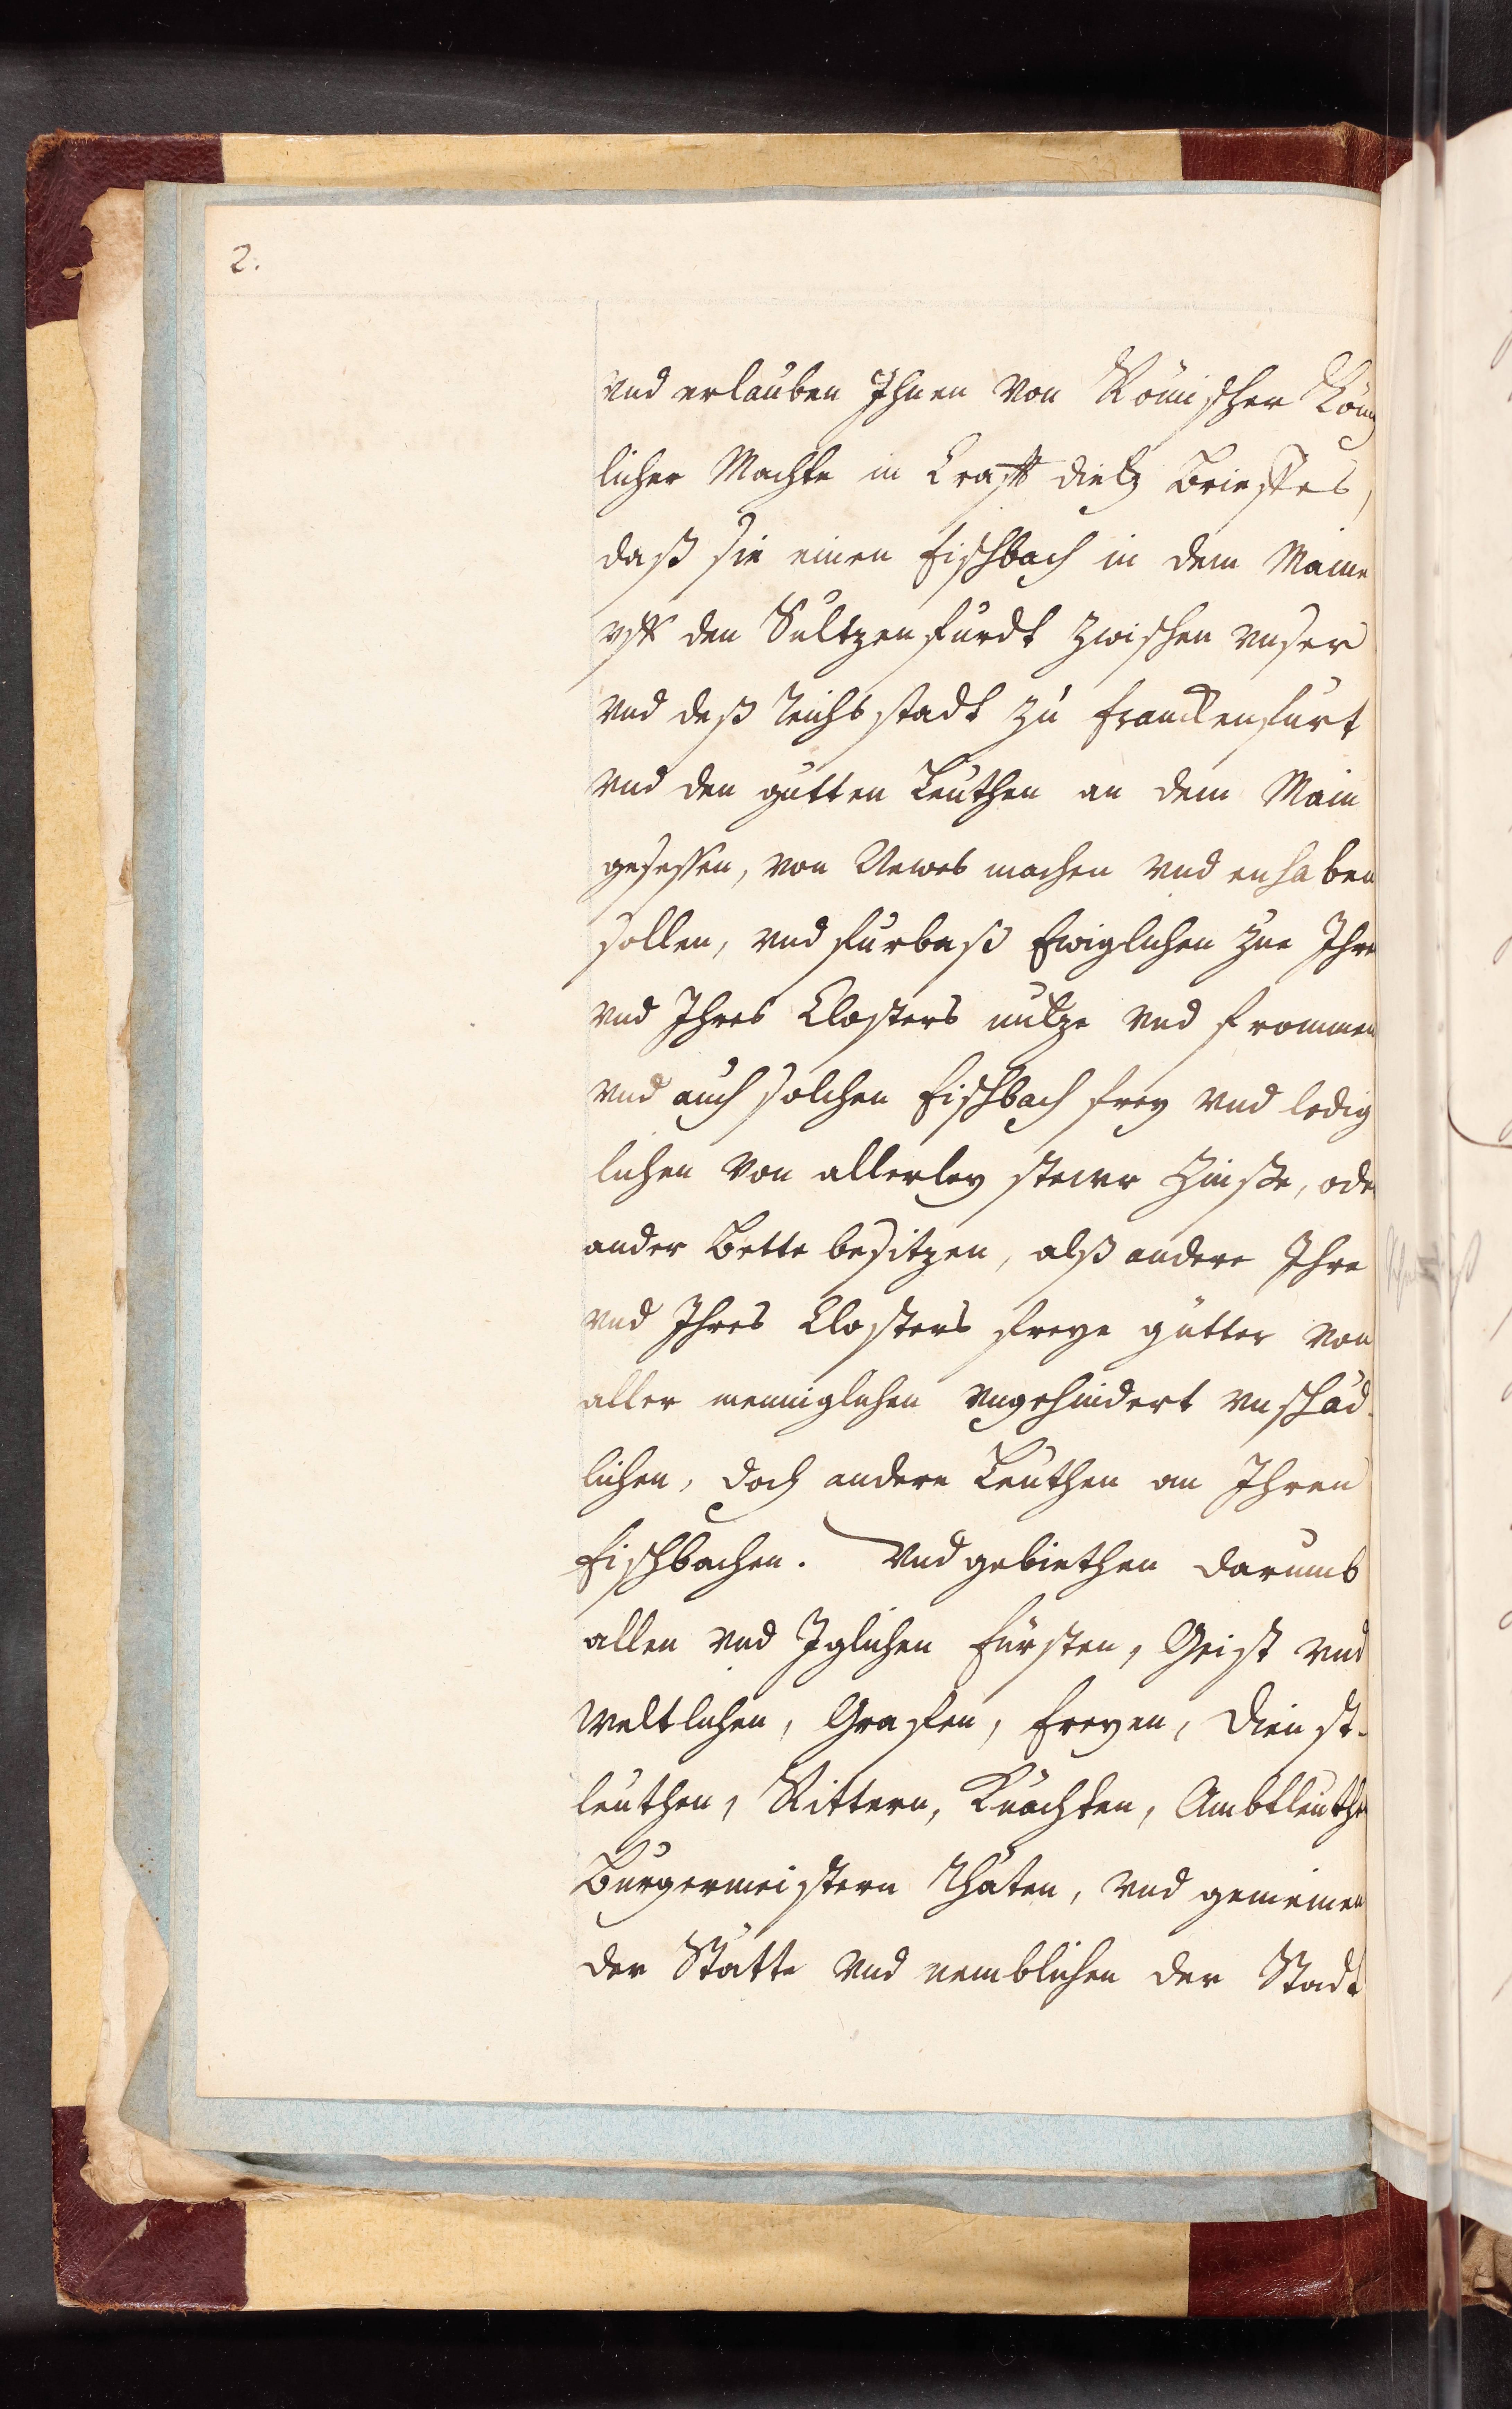 2.
vnd erlauben Ihnen von Römischer König
licher Machte in Crafft dietz Brieffes,
daß sie einen Fischbach in dem Maine
vff den Sultzenfurdt zwischen vnser
vnd deß Reichs stadt zu Franckenfurt
vnd den gutten Leuthen an dem Main
gesessen, von Newes machen vnd enhaben
sollen, vnd furbaß Ewiglichen zue Ihre
vnd Ihres Closters nutze vnd frommen
vnd auch solchen Fischbach frey vnd ledig
lichen von allerley stewr Zinße, oder
ander Bette besitzen, alß andere Ihre
vnd Ihres Closters freye gütter von
aller menniglichen vngehindert vnschäd-
lichen, doch andere Leuthen an Ihren
Fischbachen. Vnd gebiethen darumb
allen vnd Iglichen Fürsten, Geist vnd
Weltlichen, Grafen, Freyen, Dienst-
leuthen, Rittern, Knächten, Ambtleuthen
Burgermeistern Rhäten, vnd gemeinen
der Stätte vnd nemblichen der Stadt